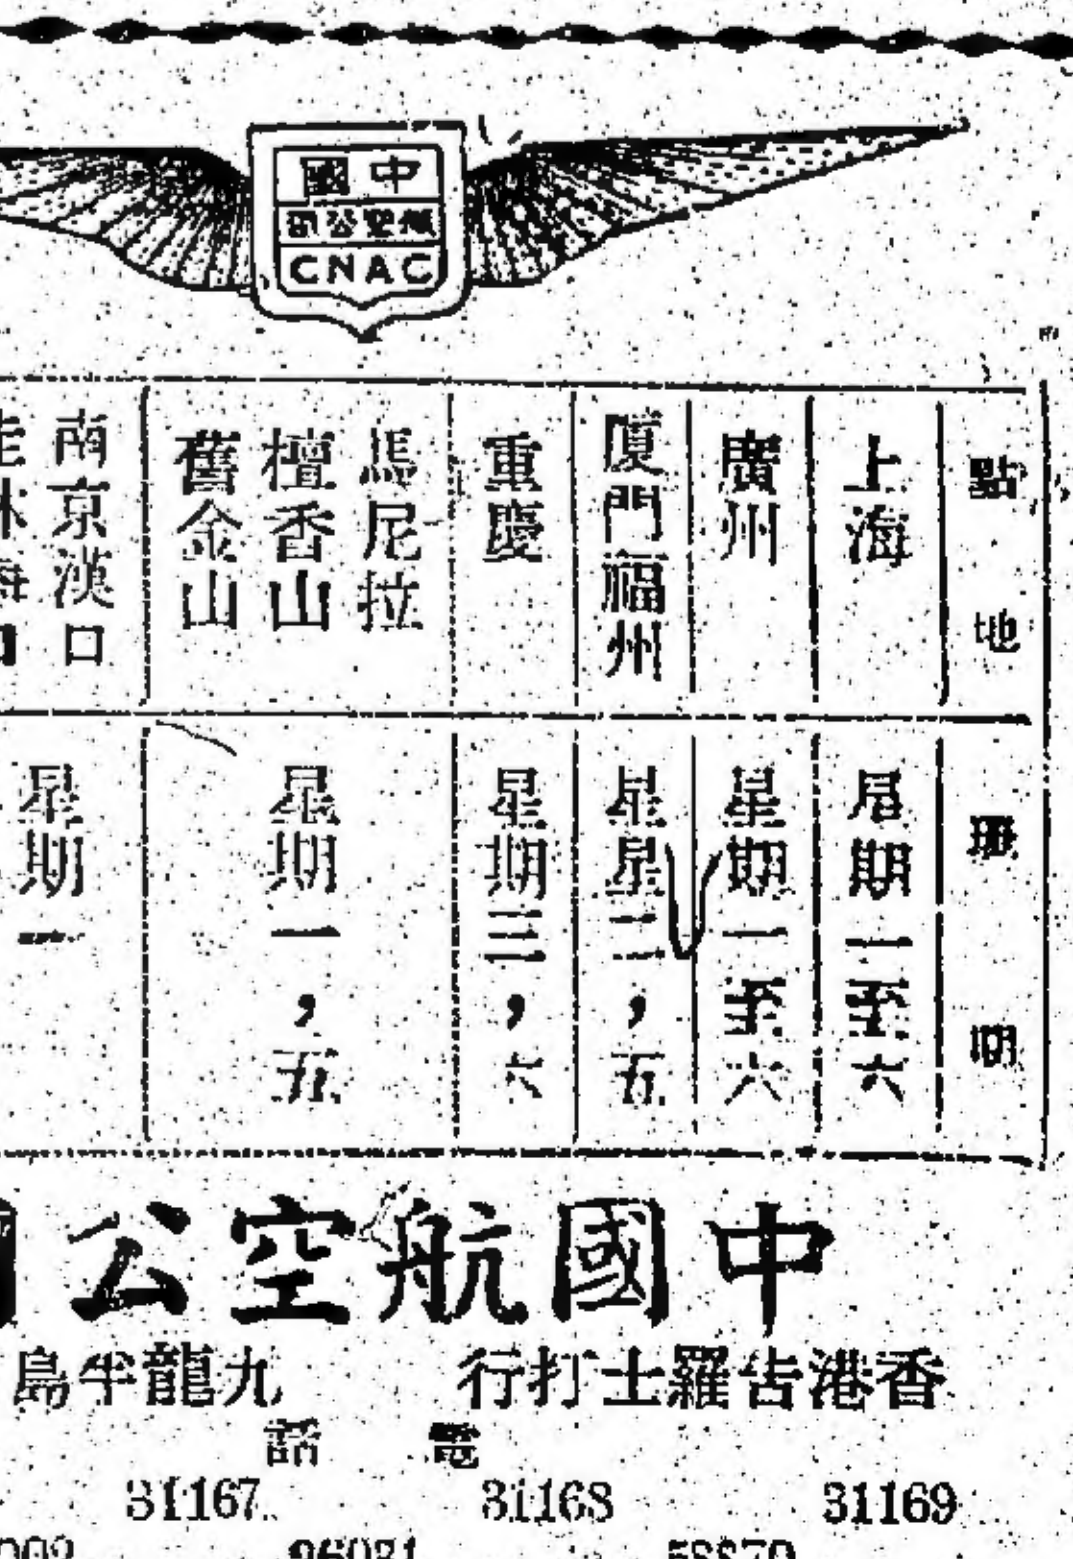 中國
航空公司
CNAC
地點
班期
上海
星期一至六
廣州
星期一至六
廈門福州
星星二，五
重慶
星期三，六
馬尼拉
檀香山
舊金山
星期一，五
南京漢口
星期一
中國航空公
香港告羅士打行
九龍半島
電話
31169 31168 31167